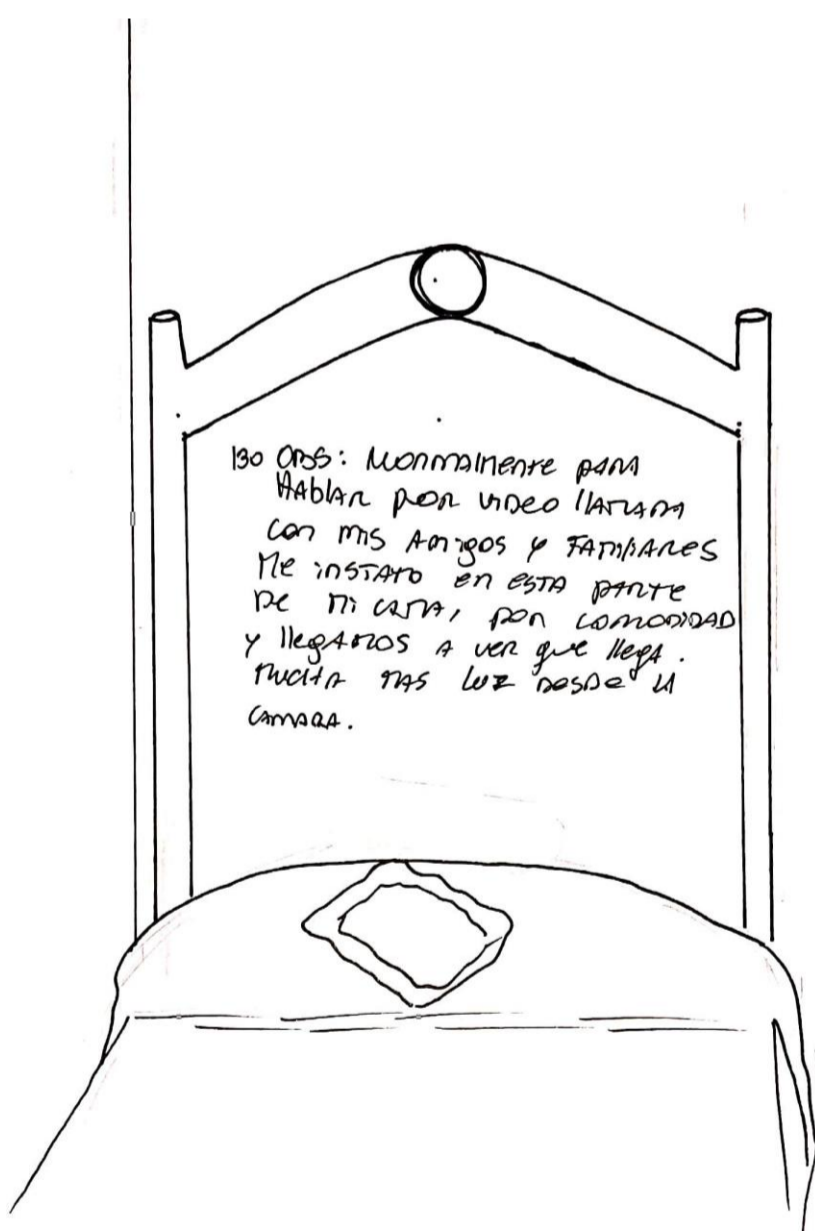 130 OBS: Normalmente para
Hablar por video llamada
con mis amigos y familiares
me instalo en esta parte
de mi cama, por comodidad
y llegamos a ver que llega.
mucha mas luz desde la
camara.